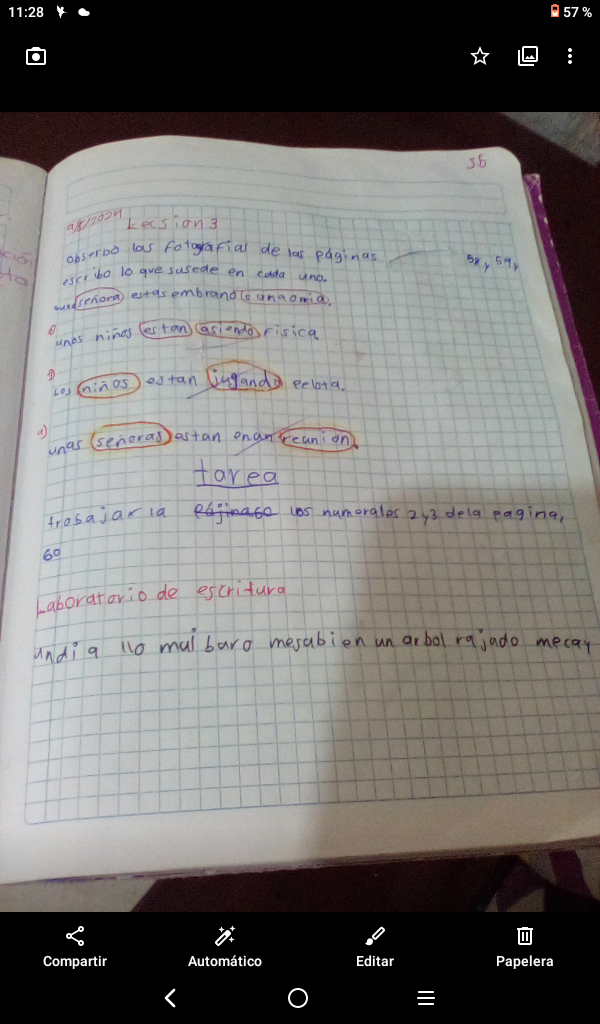 11:28
57 %
56
9/8/2024 Lecsion 3
obserbo las fotografias de las páginas 58, 59,
escribo lo que susede en cada uno.
señora estasembrando
unos niños estan asiendo Fisica.
Los niños estan jugando pelota.
unas señoras estan enan reunión.
tarea
trabajar la página 60 los numerales 2 y 3 dela pagina,
60
Laboratorio de escritura
undia llo mui baro mesabi en un arbol rajado mecay
Compartir
Automático
Editar
Papelera